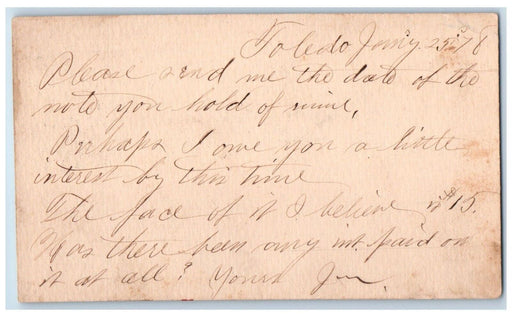 Toledo Jan'y 25th 78
Please send me the date of the
note you hold of mine,
Perhaps I owe you a little
interest by this time
The face of it I believe is $15.
Has there been any int. paid on
it at all? Yours